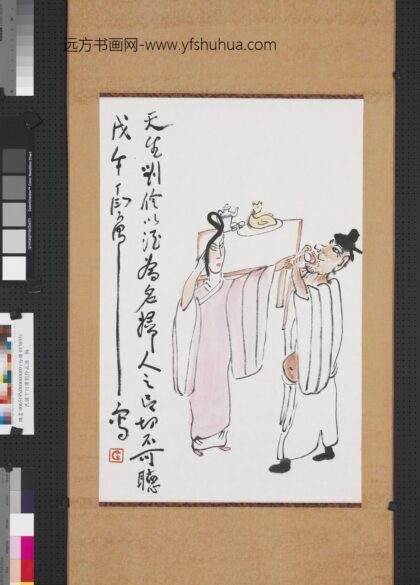 远方书画网-www.yfshuhua.com
天生劉伶以酒為名婦人之言切不可聽
戊午丁衍庸寫